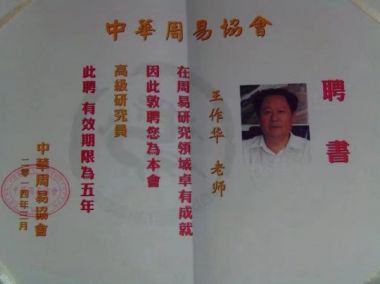 中華周易協會
聘書
王作华 老师
在周易研究領域卓有成就
因此敦聘您為本會
高級研究員
此聘 有效期限為五年
中華周易協會
二零一四年三月